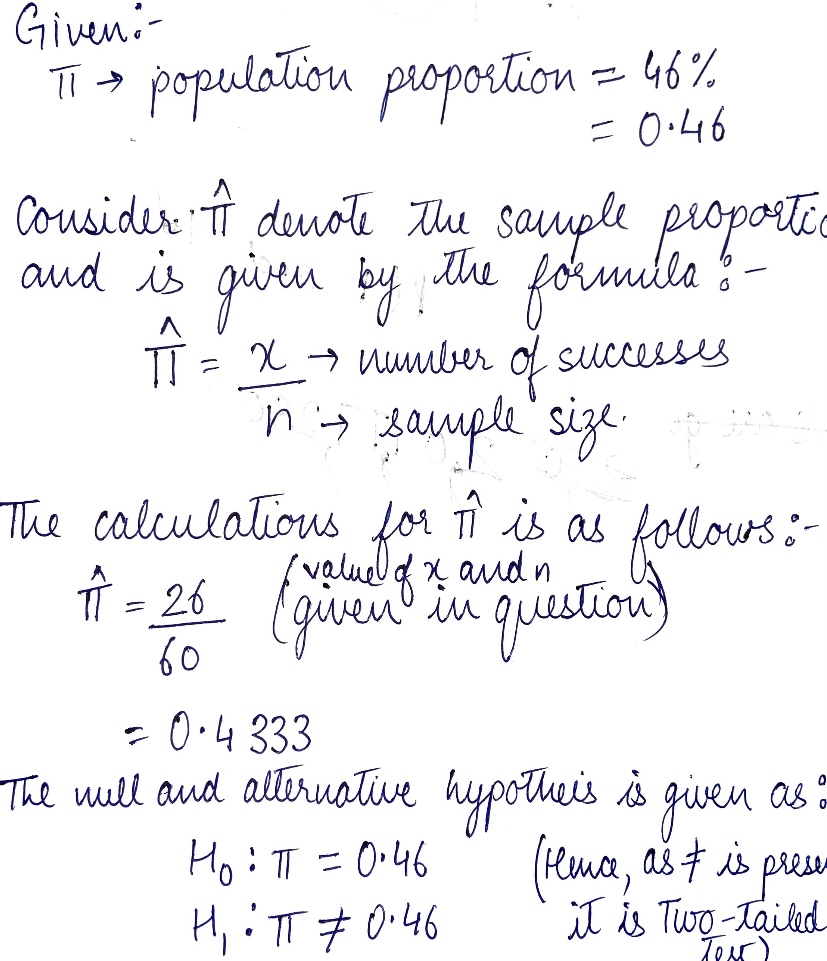 Given:-
π → population proportion = 46%
= 0.46
Consider π̂ denote the sample proportio
and is given by the formula :-
π̂ = x → number of successes
n → sample size.
The calculations for π̂ is as follows :-
(value of x and n
π̂ = 26 given in question)
60
= 0.4333
The null and alternative hypotheis is given as :
H₀ : π = 0.46 (Hence, as ≠ is prese
H₁ : π ≠ 0.46 it is Two-tailed
Test)